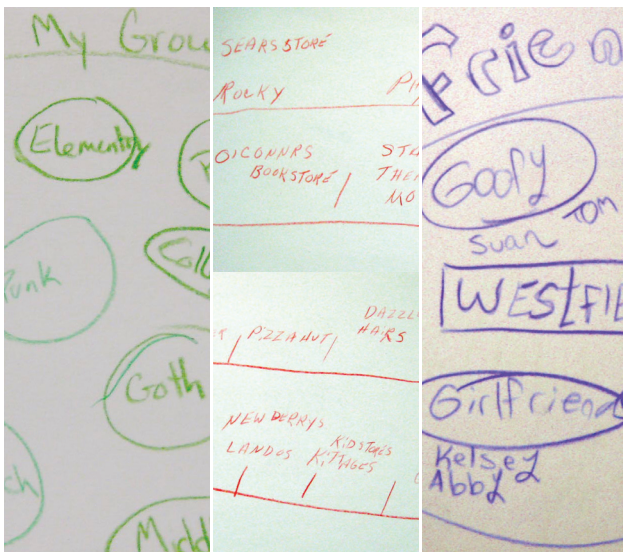 My Grou
Elementry
Punk
Coll
Goth
ch
Midd
SEARS STORE
ROCKY
PH
OICONNRS
BOOKSTORE
STA
THE
MO
PIZZA HUT
DAZZL
HAIRS
NEW DERRYS
LANDES
KIDSTORES
KITTAGES
Frien
Goofy
Suan
Tom
WESTFIE
Girlfriend
Kelsey
Abby